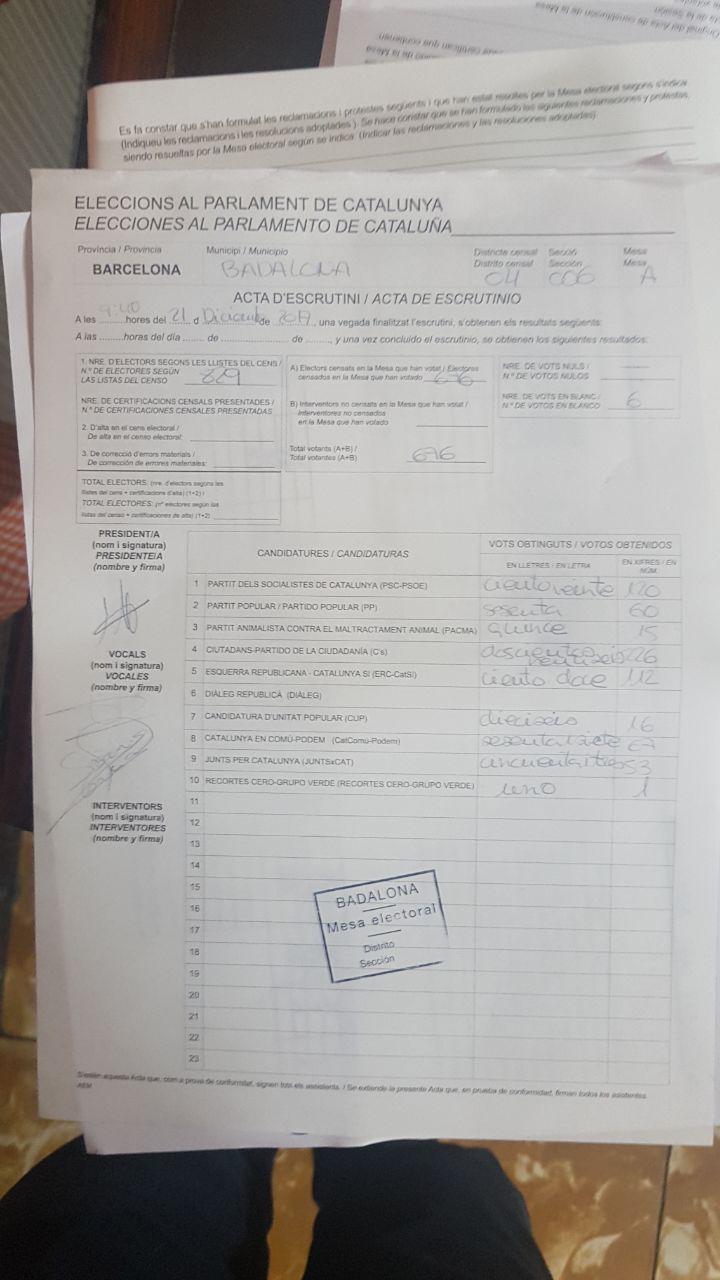 Es fa constar que s'han formulat les reclamacions i protestes següents i que han estat resoltes per la Mesa electoral segons s'indica.
(Indiqueu les reclamacions i les resolucions adoptades). Se hace constar que se han formulado las siguientes reclamaciones y protestas,
siendo resueltas por la Mesa electoral según se indica. (Indicar las reclamaciones y las resoluciones adoptadas).
ELECCIONS AL PARLAMENT DE CATALUNYA
ELECCIONES AL PARLAMENTO DE CATALUÑA
Província / Provincia Municipi / Municipio Districte censal Secció Mesa
Distrito censal Sección Mesa
BARCELONA BADALONA 04 006 A
ACTA D'ESCRUTINI / ACTA DE ESCRUTINIO
A les 9:40 hores del 21 d Diciembre de 2017, una vegada finalitzat l'escrutini, s'obtenen els resultats següents:
A las ........horas del día ....... de ....................... de ........, y una vez concluido el escrutinio, se obtienen los siguientes resultados:
1. NRE. D'ELECTORS SEGONS LES LLISTES DEL CENS /
N.º DE ELECTORES SEGÚN
LAS LISTAS DEL CENSO 829
NRE. DE CERTIFICACIONS CENSALS PRESENTADES /
N.º DE CERTIFICACIONES CENSALES PRESENTADAS
2. D'alta en el cens electoral /
De alta en el censo electoral:
3. De correcció d'errors materials /
De corrección de errores materiales:
TOTAL ELECTORS: (nre. d'electors segons les
llistes del cens + certificacions d'alta) (1+2) /
TOTAL ELECTORES: (nº electores según las
listas del censo + certificaciones de alta) (1+2)
A) Electors censats en la Mesa que han votat / Electores
censados en la Mesa que han votado 676
B) Interventors no censats en la Mesa que han votat /
Interventores no censados
en la Mesa que han votado
Total votants (A+B) /
Total votantes (A+B) 676
NRE. DE VOTS NULS /
N.º DE VOTOS NULOS
NRE. DE VOTS EN BLANC /
N.º DE VOTOS EN BLANCO 6
PRESIDENT/A
(nom i signatura)
PRESIDENTE/A
(nombre y firma)
VOCALS
(nom i signatura)
VOCALES
(nombre y firma)
INTERVENTORS
(nom i signatura)
INTERVENTORES
(nombre y firma)
CANDIDATURES / CANDIDATURAS VOTS OBTINGUTS / VOTOS OBTENIDOS
EN LLETRES / EN LETRA EN XIFRES / EN NÚM.
1 PARTIT DELS SOCIALISTES DE CATALUNYA (PSC-PSOE) ciento veinte 120
2 PARTIT POPULAR / PARTIDO POPULAR (PP) sesenta 60
3 PARTIT ANIMALISTA CONTRA EL MALTRACTAMENT ANIMAL (PACMA) quince 15
4 CIUTADANS-PARTIDO DE LA CIUDADANÍA (C's) doscientos veintiseis 226
5 ESQUERRA REPUBLICANA - CATALUNYA SÍ (ERC-CatSí) ciento doce 112
6 DIÀLEG REPUBLICÀ (DIÀLEG)
7 CANDIDATURA D'UNITAT POPULAR (CUP) dieciseis 16
8 CATALUNYA EN COMÚ-PODEM (CatComú-Podem) sesenta i siete 67
9 JUNTS PER CATALUNYA (JUNTSxCAT) cincuenta i tres 53
10 RECORTES CERO-GRUPO VERDE (RECORTES CERO-GRUPO VERDE) uno 1
11
12
13
14
15
16
17
18
19
20
21
22
23
BADALONA
Mesa electoral
Distrito
Sección
S'estén aquesta Acta que, com a prova de conformitat, signen tots els assistents. / Se extiende la presente Acta que, en prueba de conformidad, firman todos los asistentes.